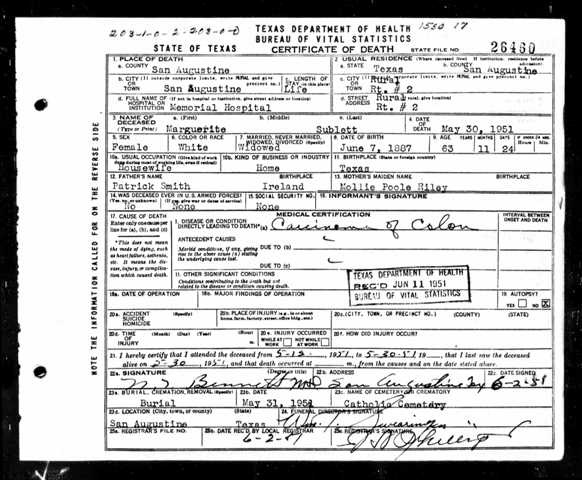 203-1-0-2-203-0-0
TEXAS DEPARTMENT OF HEALTH
1530 17
BUREAU OF VITAL STATISTICS
STATE OF TEXAS
CERTIFICATE OF DEATH
STATE FILE NO. 26460
1. PLACE OF DEATH
a. COUNTY San Augustine
2. USUAL RESIDENCE (Where deceased lived. If institution, residence before admission)
a. STATE Texas b. COUNTY San Augustine
b. CITY (If outside corporate limits, write RURAL and give precinct no.) OR TOWN San Augustine
c. LENGTH OF STAY Life
c. CITY OR TOWN Rural Rt. # 2
d. FULL NAME OF HOSPITAL OR INSTITUTION (If not in hospital or institution, give street address or location) Memorial Hospital
d. STREET ADDRESS (If rural, give location) Rural Rt. # 2
3. NAME OF DECEASED (Type or Print)
a. (First) Marguerite b. (Middle) c. (Last) Sublett
4. DATE OF DEATH May 30, 1951
5. SEX Female
6. COLOR OR RACE White
7. MARRIED, NEVER MARRIED, WIDOWED, DIVORCED (Specify) Widowed
8. DATE OF BIRTH June 7, 1887
9. AGE YEARS 63 MONTHS 11 DAYS 24
10a. USUAL OCCUPATION Housewife
10b. KIND OF BUSINESS OR INDUSTRY Home
11. BIRTHPLACE (State or foreign country) Texas
12. FATHER'S NAME Patrick Smith BIRTHPLACE Ireland
13. MOTHER'S MAIDEN NAME Mollie Poole Riley BIRTHPLACE
14. WAS DECEASED EVER IN U.S. ARMED FORCES? No None
15. SOCIAL SECURITY NO. None
16. INFORMANT'S SIGNATURE
17. CAUSE OF DEATH
Enter only one cause per line for (a), (b), and (c)
MEDICAL CERTIFICATION
INTERVAL BETWEEN ONSET AND DEATH
I. DISEASE OR CONDITION DIRECTLY LEADING TO DEATH (a) Carcinoma of Colon
*This does not mean the mode of dying, such as heart failure, asthenia, etc. It means the disease, injury, or complication which caused death.
ANTECEDENT CAUSES
Morbid conditions, if any, giving rise to the above cause (a) stating the underlying cause last.
DUE TO (b)
DUE TO (c)
II. OTHER SIGNIFICANT CONDITIONS
Conditions contributing to the death but not related to the disease or condition causing death.
TEXAS DEPARTMENT OF HEALTH
REC'D JUN 11 1951
BUREAU OF VITAL STATISTICS
18a. DATE OF OPERATION
18b. MAJOR FINDINGS OF OPERATION
19. AUTOPSY? YES NO X
20a. ACCIDENT SUICIDE HOMICIDE (Specify)
20b. PLACE OF INJURY
20c. (CITY, TOWN, OR PRECINCT NO.) (COUNTY) (STATE)
20d. TIME OF INJURY (Month) (Day) (Year) (Hour)
20e. INJURY OCCURRED WHILE AT WORK NOT WHILE AT WORK
20f. HOW DID INJURY OCCUR?
21. I hereby certify that I attended the deceased from 5-12, 1951, to 5-30-51 19, that I last saw the deceased
alive on 5-30 1951, and that death occurred at m., from the causes and on the date stated above.
22a. SIGNATURE (Degree or title) Bennett MD
22b. ADDRESS San Augustine Tex
22c. DATE SIGNED 6-2-51
23a. BURIAL, CREMATION, REMOVAL (Specify) Burial
23b. DATE May 31, 1951
23c. NAME OF CEMETERY OR CREMATORY Catholic Cemetery
23d. LOCATION (City, town, or county) (State) San Augustine Texas
24. FUNERAL DIRECTOR'S SIGNATURE
25a. REGISTRAR'S FILE NO.
25b. DATE REC'D BY LOCAL REGISTRAR 6-2-51
25c. REGISTRAR'S SIGNATURE
NOTE THE INFORMATION CALLED FOR ON THE REVERSE SIDE